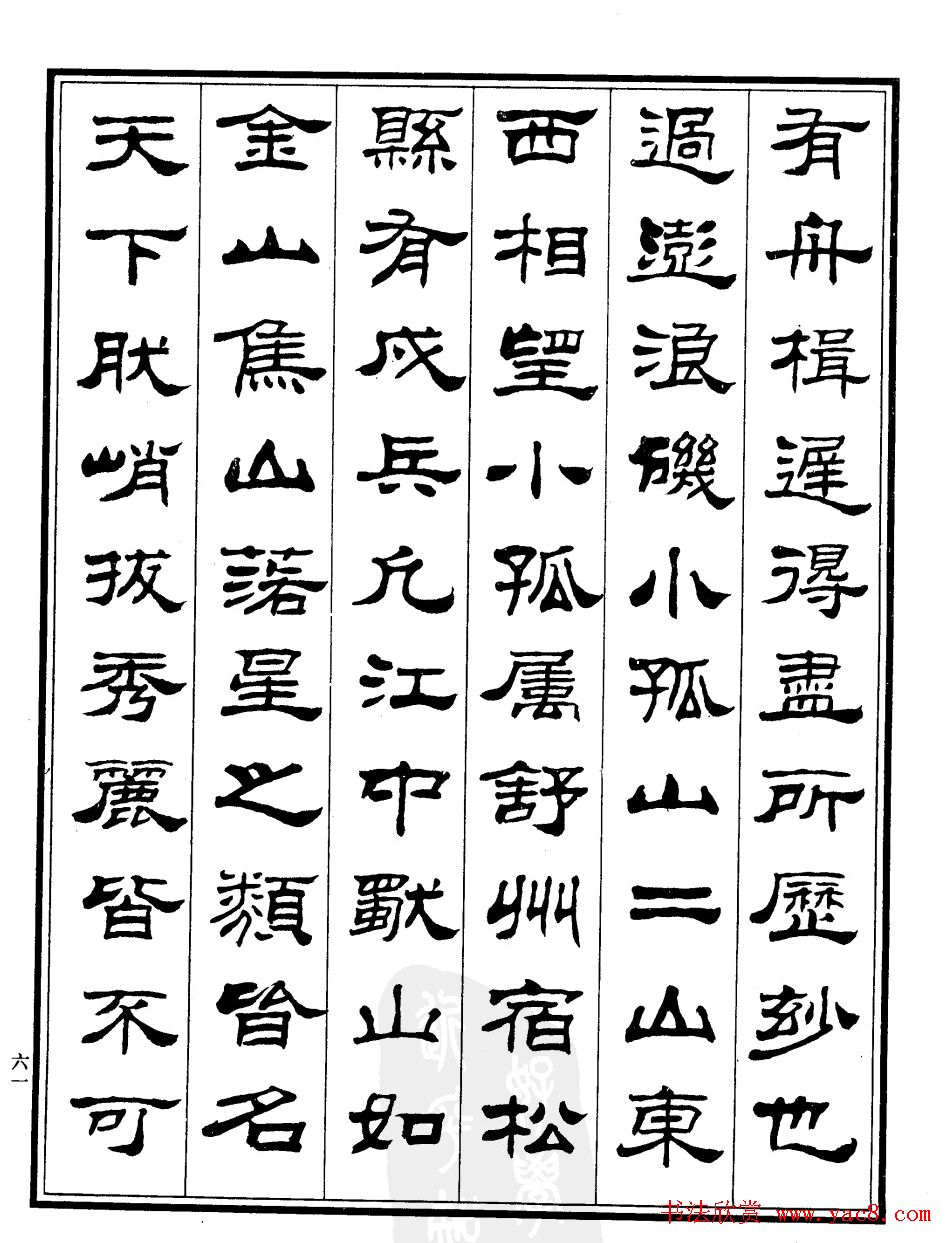 有舟楫遲得盡所歷玅也
過澎浪磯小孤山二山東
西相望小孤属舒州宿松
縣有戍兵凡江中獨山如
金山焦山落星之類皆名
天下肰峭拔秀麗皆不可
六一
书法欣赏 www.yac8.com